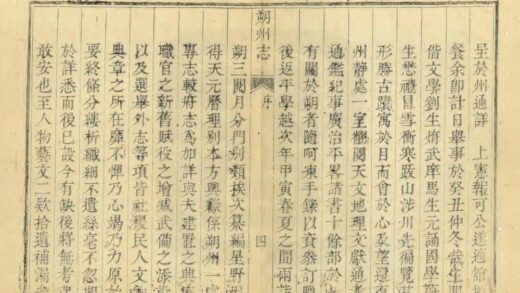 呈於州通詳 上憲報可公遂適館
餐余卽計日舉事於癸丑仲冬哉生
偕文學劉生焴武庠馬生元誦國學
生懋禮冐雪衝寒跋山涉川先徧覽
形勝古蹟寓於目而會於心爰還
州静处一室翻閱天文地理文獻通
通鑑紀事廣治平畧諸書十餘部於
有關於朔者隨呵凍手錄以資叅訂
後返平學越次年甲寅春夏之間兩
朔州志 序 四
朔三閱月分門别類挨次纂編星野
得天元曆理别本方輿係朔州一
專志較府志爲加詳與夫建置之興
職官之新舊賦役之增減武備之添
以及選舉外志等項皆社稷民人文
典章之所在靡不憚乃心竭乃力原始
要終條分縷析纖細不遺絲毫不忽期
於詳悉而後已設今有缺後將無考
敢安也至人物藝文二欵拾遺補漏